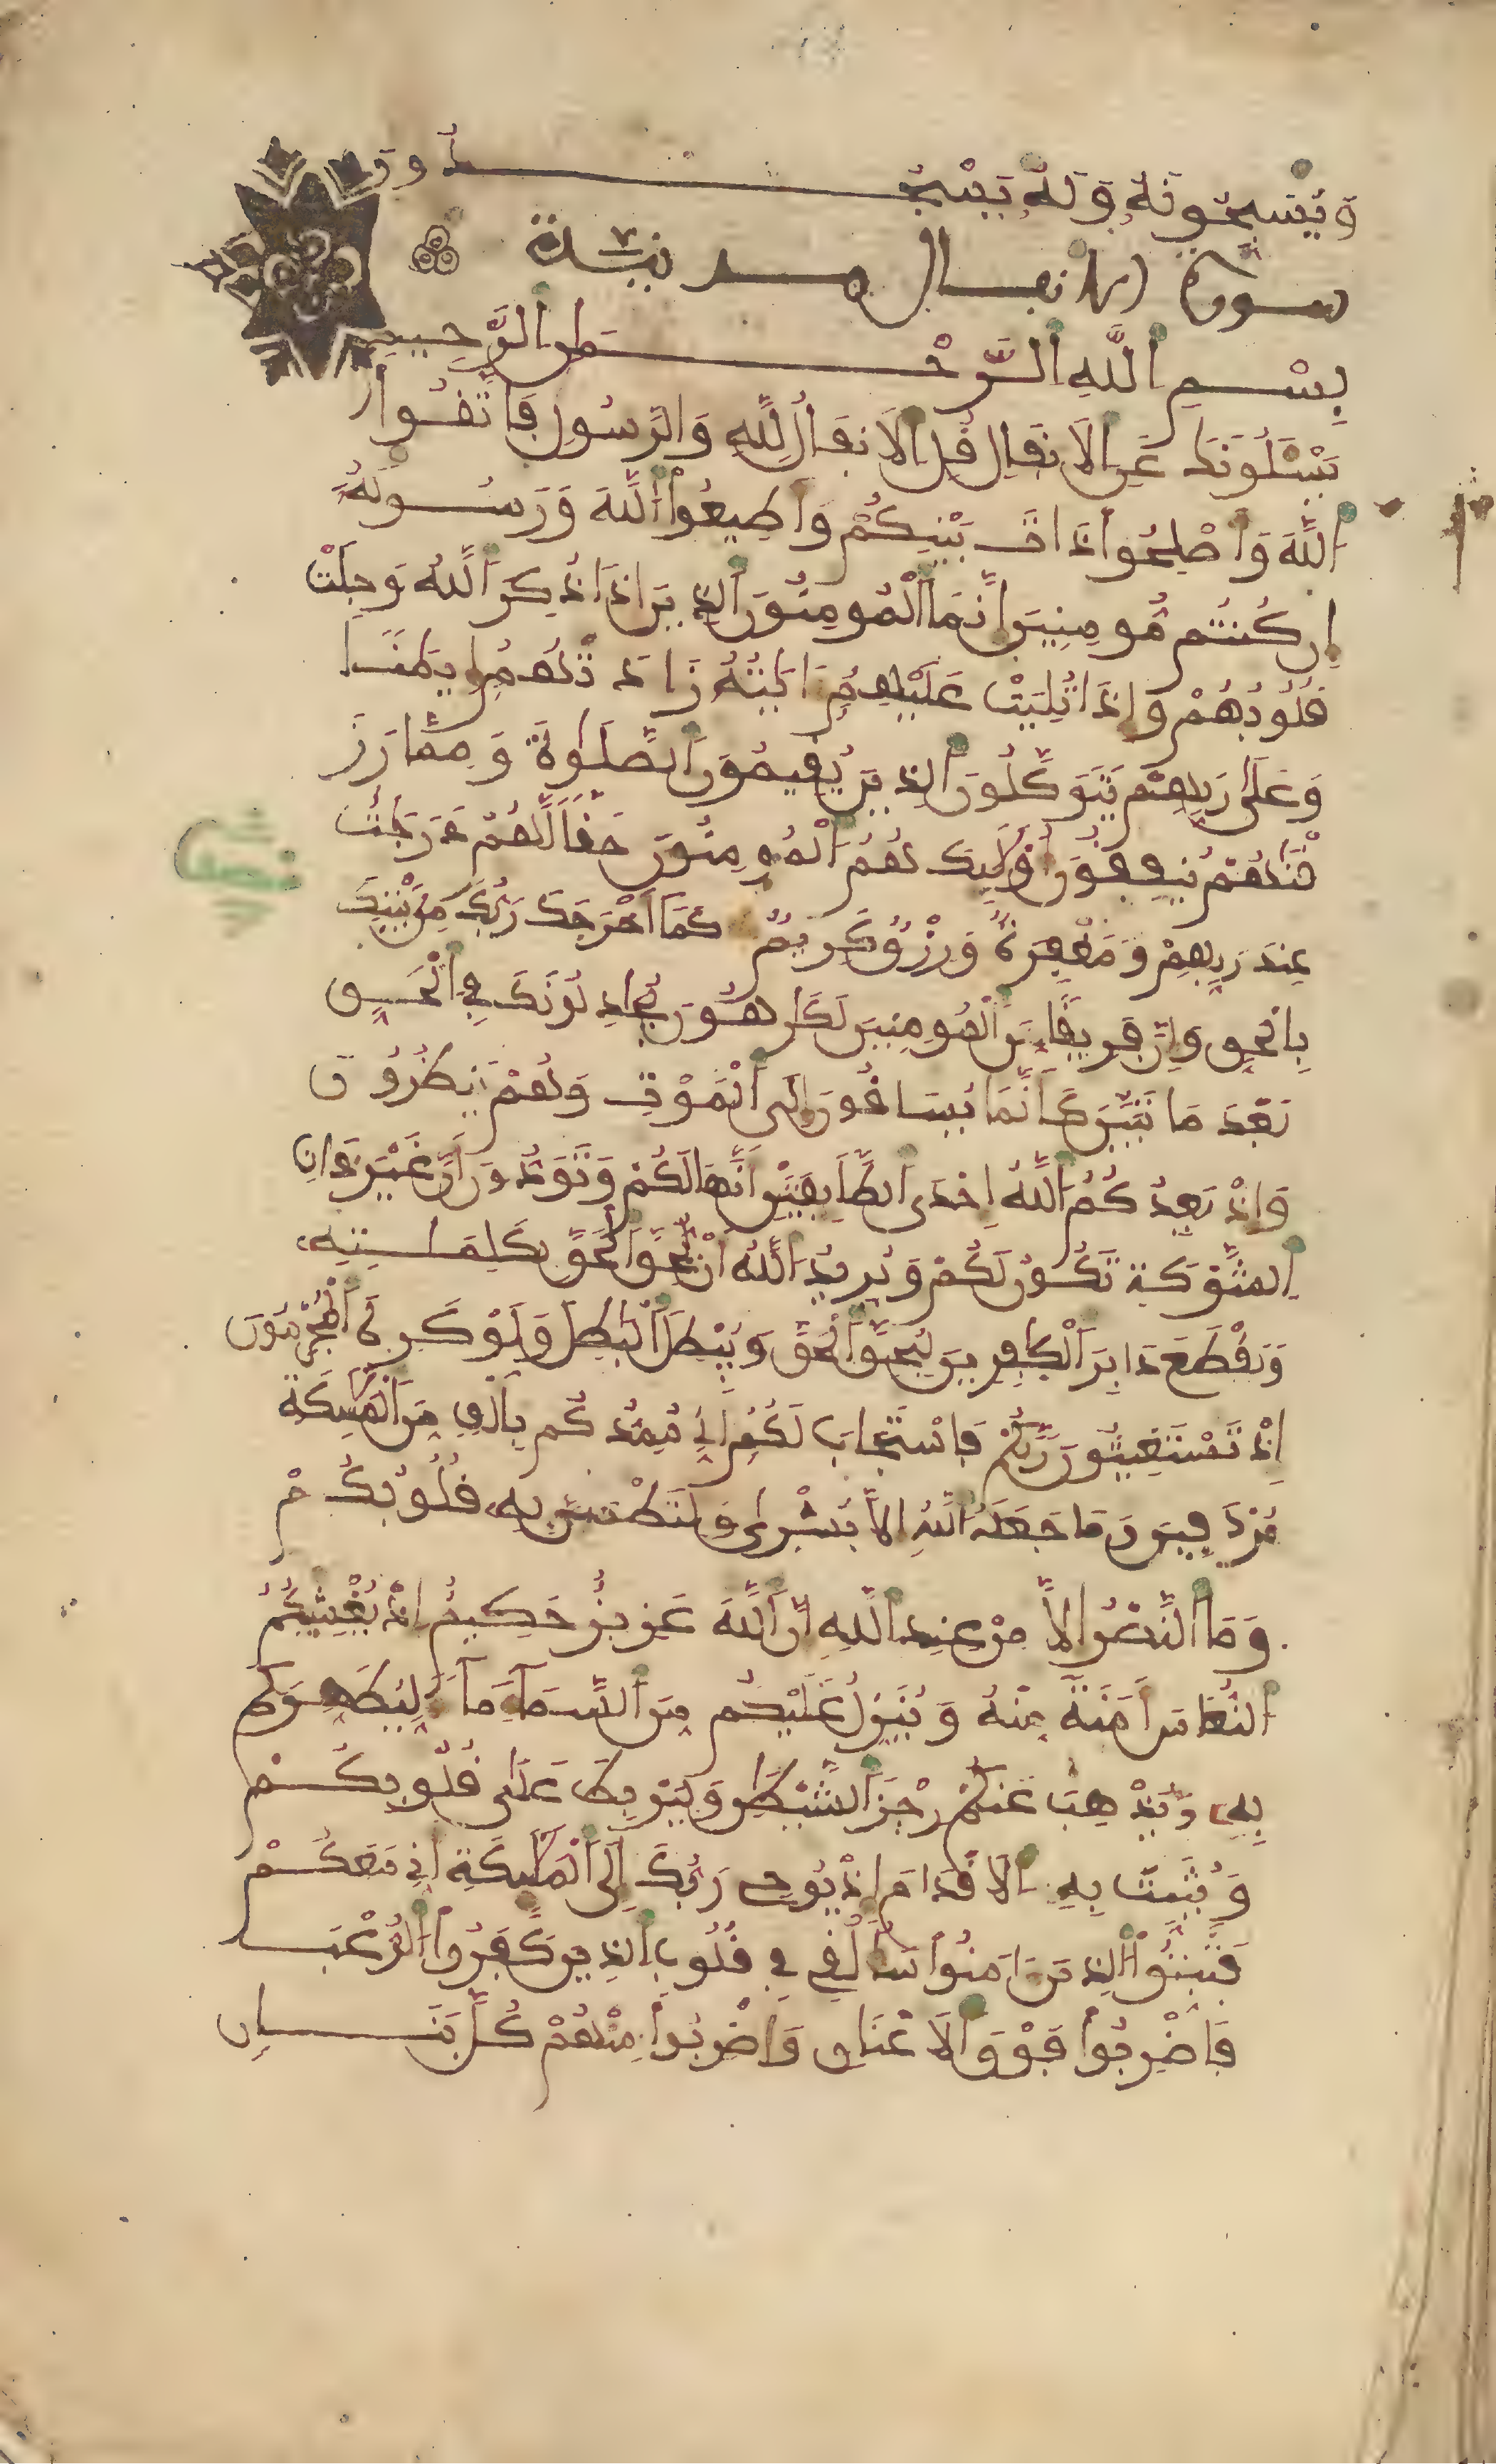 وَيُسَبِّحُونَهُ وَلَهُ يَسْجُدُونَ
سورة الانفال مدنية
بِسْمِ اللَّهِ الرَّحْمَٰنِ الرَّحِيمِ
يَسْـَٔلُونَكَ عَنِ الَانفَالِ قُلِ الَانفَالُ لِلَّهِ وَالرَّسُولِ فَاتَّقُوا
اللَّهَ وَأَصْلِحُوا ذَاتَ بَيْنِكُمْ وَأَطِيعُوا اللَّهَ وَرَسُولَهُ
إِن كُنتُم مُّومِنِينَ إِنَّمَا الْمُومِنُونَ الذِينَ إِذَا ذُكِرَ اللَّهُ وَجِلَتْ
قُلُوبُهُمْ وَإِذَا تُلِيَتْ عَلَيْهِمُ ءَايَٰتُهُ زَادَتْهُمُ إِيمَٰنًا
وَعَلَىٰ رَبِّهِمْ يَتَوَكَّلُونَ الذِينَ يُقِيمُونَ الصَّلَوٰةَ وَمِمَّا رَزَ
قْنَٰهُمْ يُنفِقُونَ أُوْلَٰٓئِكَ هُمُ الْمُومِنُونَ حَقًّا لَّهُمْ دَرَجَٰتٌ
عِندَ رَبِّهِمْ وَمَغْفِرَةٌ وَرِزْقٌ كَرِيمٌ كَمَا أَخْرَجَكَ رَبُّكَ مِنۢ بَيْتِكَ
بِالْحَقِّ وَإِنَّ فَرِيقًا مِّنَ الْمُومِنِينَ لَكَٰرِهُونَ يُجَٰدِلُونَكَ فِي الْحَقِّ
بَعْدَ مَا تَبَيَّنَ كَأَنَّمَا يُسَاقُونَ إِلَى الْمَوْتِ وَهُمْ يَنظُرُونَ
وَإِذْ يَعِدُكُمُ اللَّهُ إِحْدَى الطَّآئِفَتَيْنِ أَنَّهَا لَكُمْ وَتَوَدُّونَ أَنَّ غَيْرَ ذَاتِ
الشَّوْكَةِ تَكُونُ لَكُمْ وَيُرِيدُ اللَّهُ أَنْ يُحِقَّ الْحَقَّ بِكَلِمَٰتِهِ
وَيَقْطَعَ دَابِرَ الْكَٰفِرِينَ لِيُحِقَّ الْحَقَّ وَيُبْطِلَ الْبَٰطِلَ وَلَوْ كَرِهَ الْمُجْرِمُونَ
إِذْ تَسْتَغِيثُونَ رَبَّكُمْ فَاسْتَجَابَ لَكُمُ أَنِّي مُمِدُّكُم بِأَلْفٍ مِّنَ الْمَلَٰٓئِكَةِ
مُرْدَفِينَ وَمَا جَعَلَهُ اللَّهُ إِلَّا بُشْرَىٰ وَلِتَطْمَئِنَّ بِهِ قُلُوبُكُمْ
وَمَا النَّصْرُ إِلَّا مِنْ عِندِ اللَّهِ إِنَّ اللَّهَ عَزِيزٌ حَكِيمٌ إِذْ يُغْشِيكُمُ
النُّعَاسَ أَمَنَةً مِّنْهُ وَيُنَزِّلُ عَلَيْكُم مِّنَ السَّمَآءِ مَآءً لِّيُطَهِّرَكُم
بِهِ وَيُذْهِبَ عَنكُمْ رِجْزَ الشَّيْطَٰنِ وَلِيَرْبِطَ عَلَىٰ قُلُوبِكُمْ
وَيُثَبِّتَ بِهِ الَاقْدَامَ إِذْ يُوحِي رَبُّكَ إِلَى الْمَلَٰٓئِكَةِ أَنِّي مَعَكُمْ
فَثَبِّتُوا الذِينَ ءَامَنُوا سَأُلْقِي فِي قُلُوبِ الذِينَ كَفَرُوا الرُّعْبَ
فَاضْرِبُوا فَوْقَ الَاعْنَاقِ وَاضْرِبُوا مِنْهُمْ كُلَّ بَنَانٍ